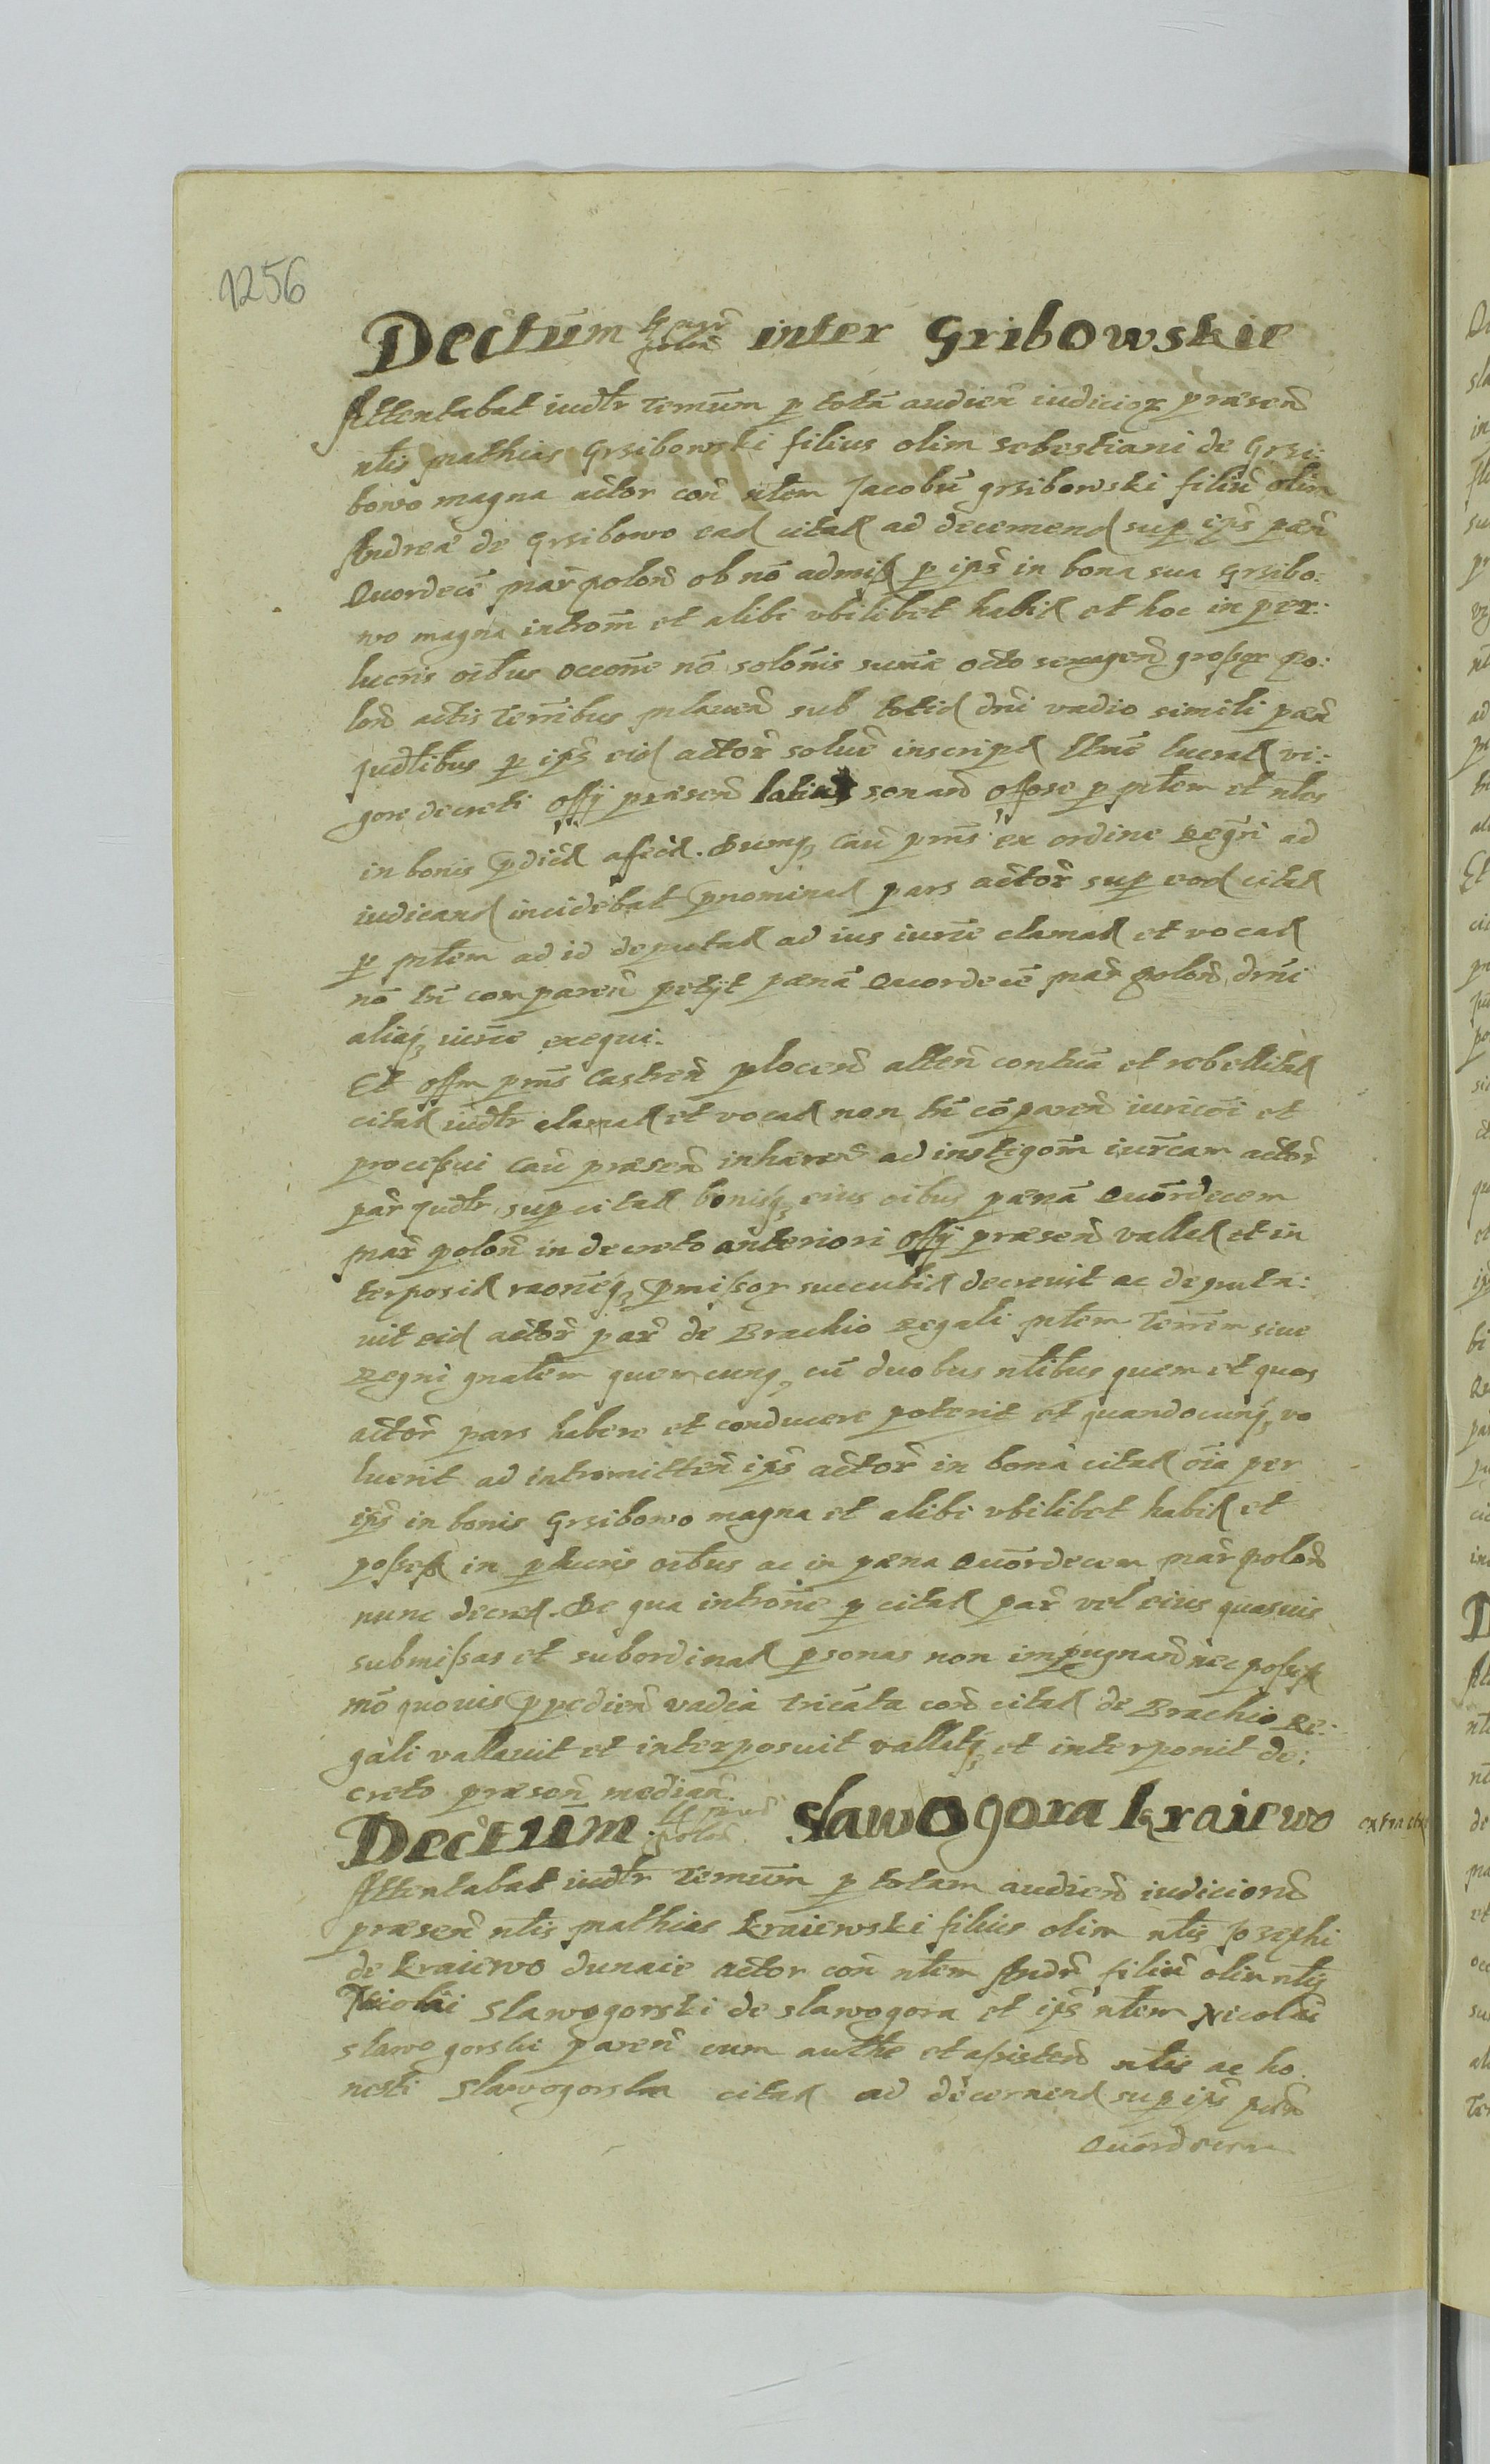 1256
Dectum inter Gribowskie
Attentabat iudtr Termum p totā audien iudicior praesen
ntis Mathias Grzibowski filius olim Sebestiani de Grzi:
bowo magna actor con ntem Jacobū grzibowski filiū olim
Andreæ de Grzibowo ead citat ad decernend sup ips paen
Quordecē mar polon ob nō admiss p ips in bona sua Grzibo:
wo magna introm et alibi vbilibet habit et hoc in per:
lucris oibus occone nō solonis sumæ octo sexagen grossor po:
lon actis Terribus Mlauen sub totid dni vadio simili paen
qudtibus p ips eid actor soluē inscript lucrat vi:
gore decreti offy praesen latius sonan offose p mtem et ntes
in bonis pdict afect. Dumq cau pns ex ordine Regri ad
iudicand incidebat pnominat pars actor sup eod citat
p mtem ad id deputat ad ius iurie clamat et vocat
nō tn comparen petyt paenā Quordecē mar polon drni
aliaq iurie exequi.
Et offm pns Castren plocen atten contuā et rebellitat
citat iudtr clamat et vocat non tn cōparen iuricōi et
processui cau praesen inhaeren ad instigom iuricam actor
par qudtr sup citat bonisq eius oibus paenā Quordecem
mar polon in decreto anteriori offy praesen vallat et in
terposit raoneq pmissor succubit decreuit ac deputa:
uit eid actor par de Brachio Regali mtem Terrem siue
Regni gnalem quemcunq cū duobus ntibus quem et quos
actor pars habere et conducere poterit et quandocunq vo
luerit ad intromitten ips actor in bona citat oia per
ips in bonis Grzibowo magna et alibi vbilibet habit et
possess in p lucris oibus ac in paena Quordecem mar polon
nunc decret. De qua introne p citat par vel eius quasuis
submissas et subordinat psonas non impugnan nec possess
mō quouis ppedien vadia tricata con citat de Brachio Re:
gali vallauit et interposuit vallatq et interponit de:
creto praesen median.
Dectum Slawogora kraiewo extractu
Attentabat iudtr Termum p totam audien iudicion
praesen ntis Mathias kraiewski filius olim ntis Josephi
de kraiewo dunaie actor con ntem Andr filiū olim ntis
Nicolai Slawogorski de Slawogora et ips ntem Nicolai
Slawogorski paren cum authe et assisten ntis ac ho
nesti Slawogorska citat ad decernend sup ips paen
Quordecem